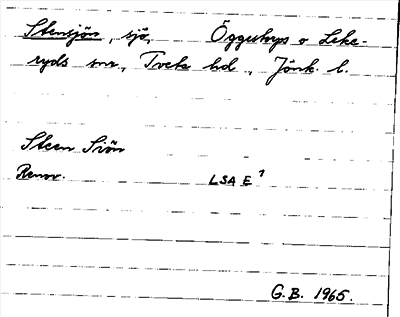 Stensjön, sjö, Öggestorps o Leke-
ryds snr, Tveta hd, Jönk. l.
Steen Siön
Renov. LSA E 1
G.B. 1965.